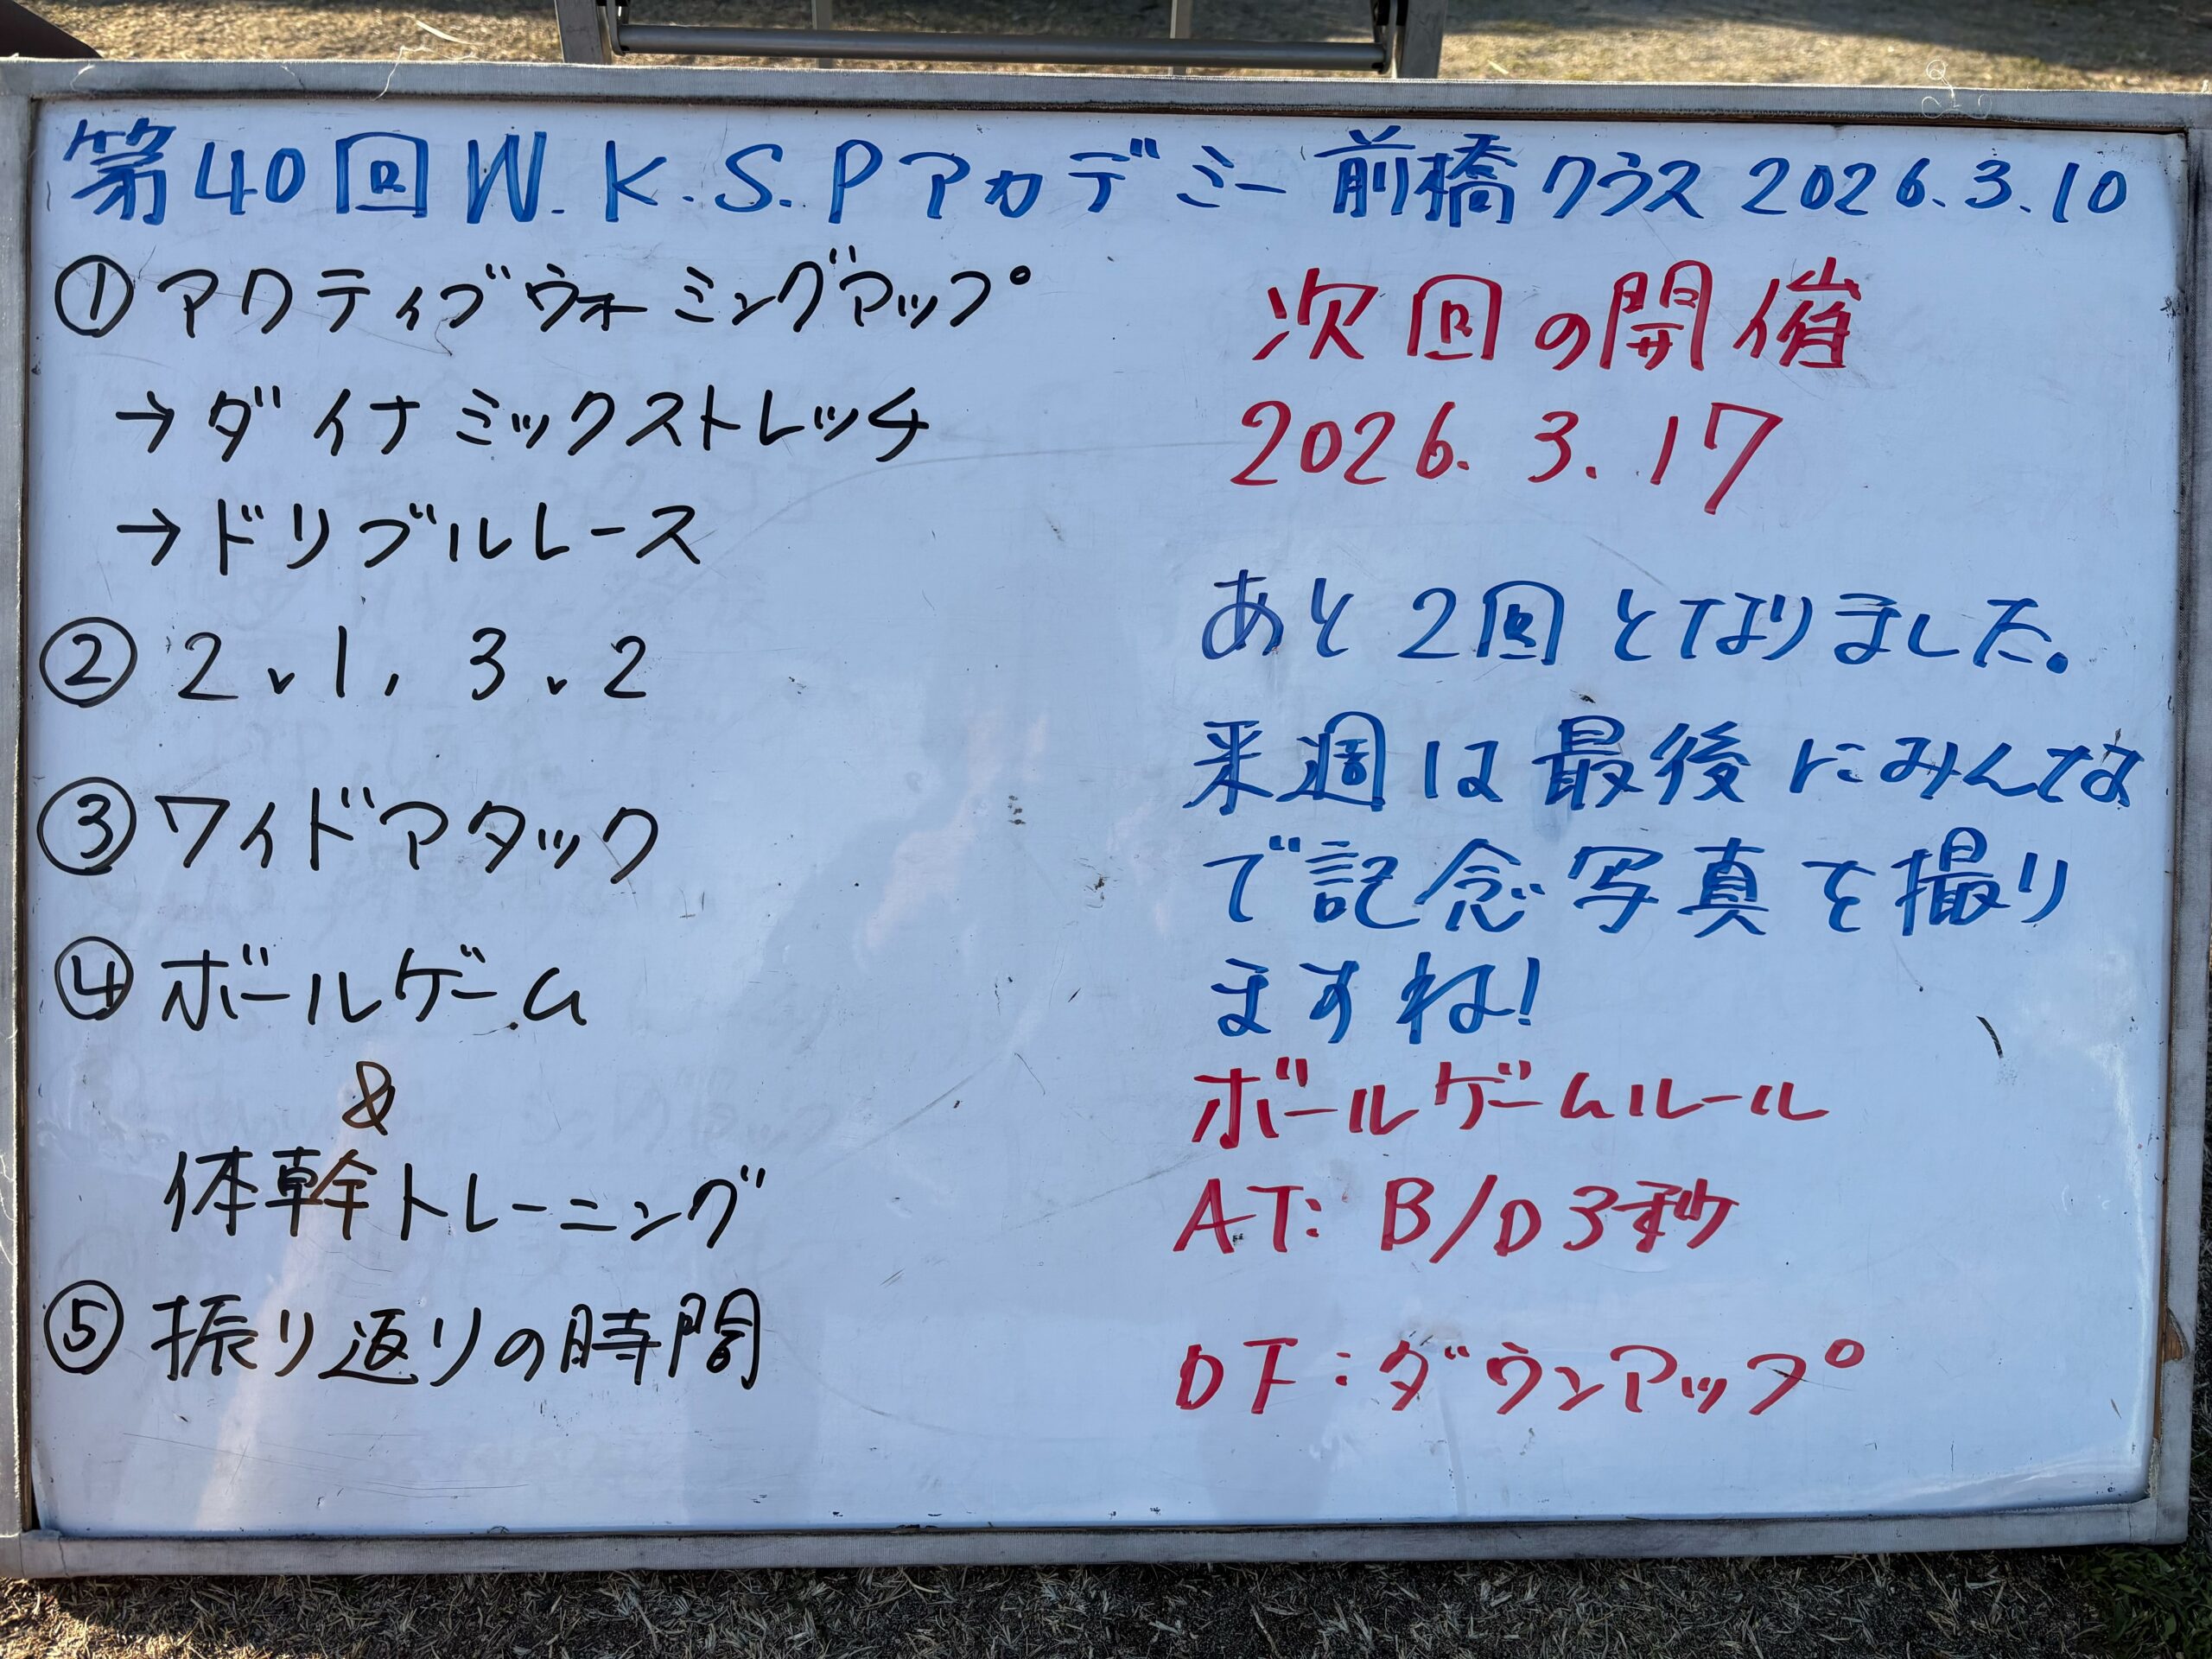 第40回 W.K.S.Pアカデミー 前橋クラス 2026.3.10
①アクティブウォーミングアップ
→ダイナミックストレッチ
→ドリブルレース
② 2v1, 3v2
③ワイドアタック
④ボールゲーム
&
体幹トレーニング
⑤振り返りの時間
次回の開催
2026.3.17
あと2回となりました。
来週は最後にみんな
で記念写真を撮り
ますね!
ボールゲームルール
AT: B/D 3秒
DF:ダウンアップ